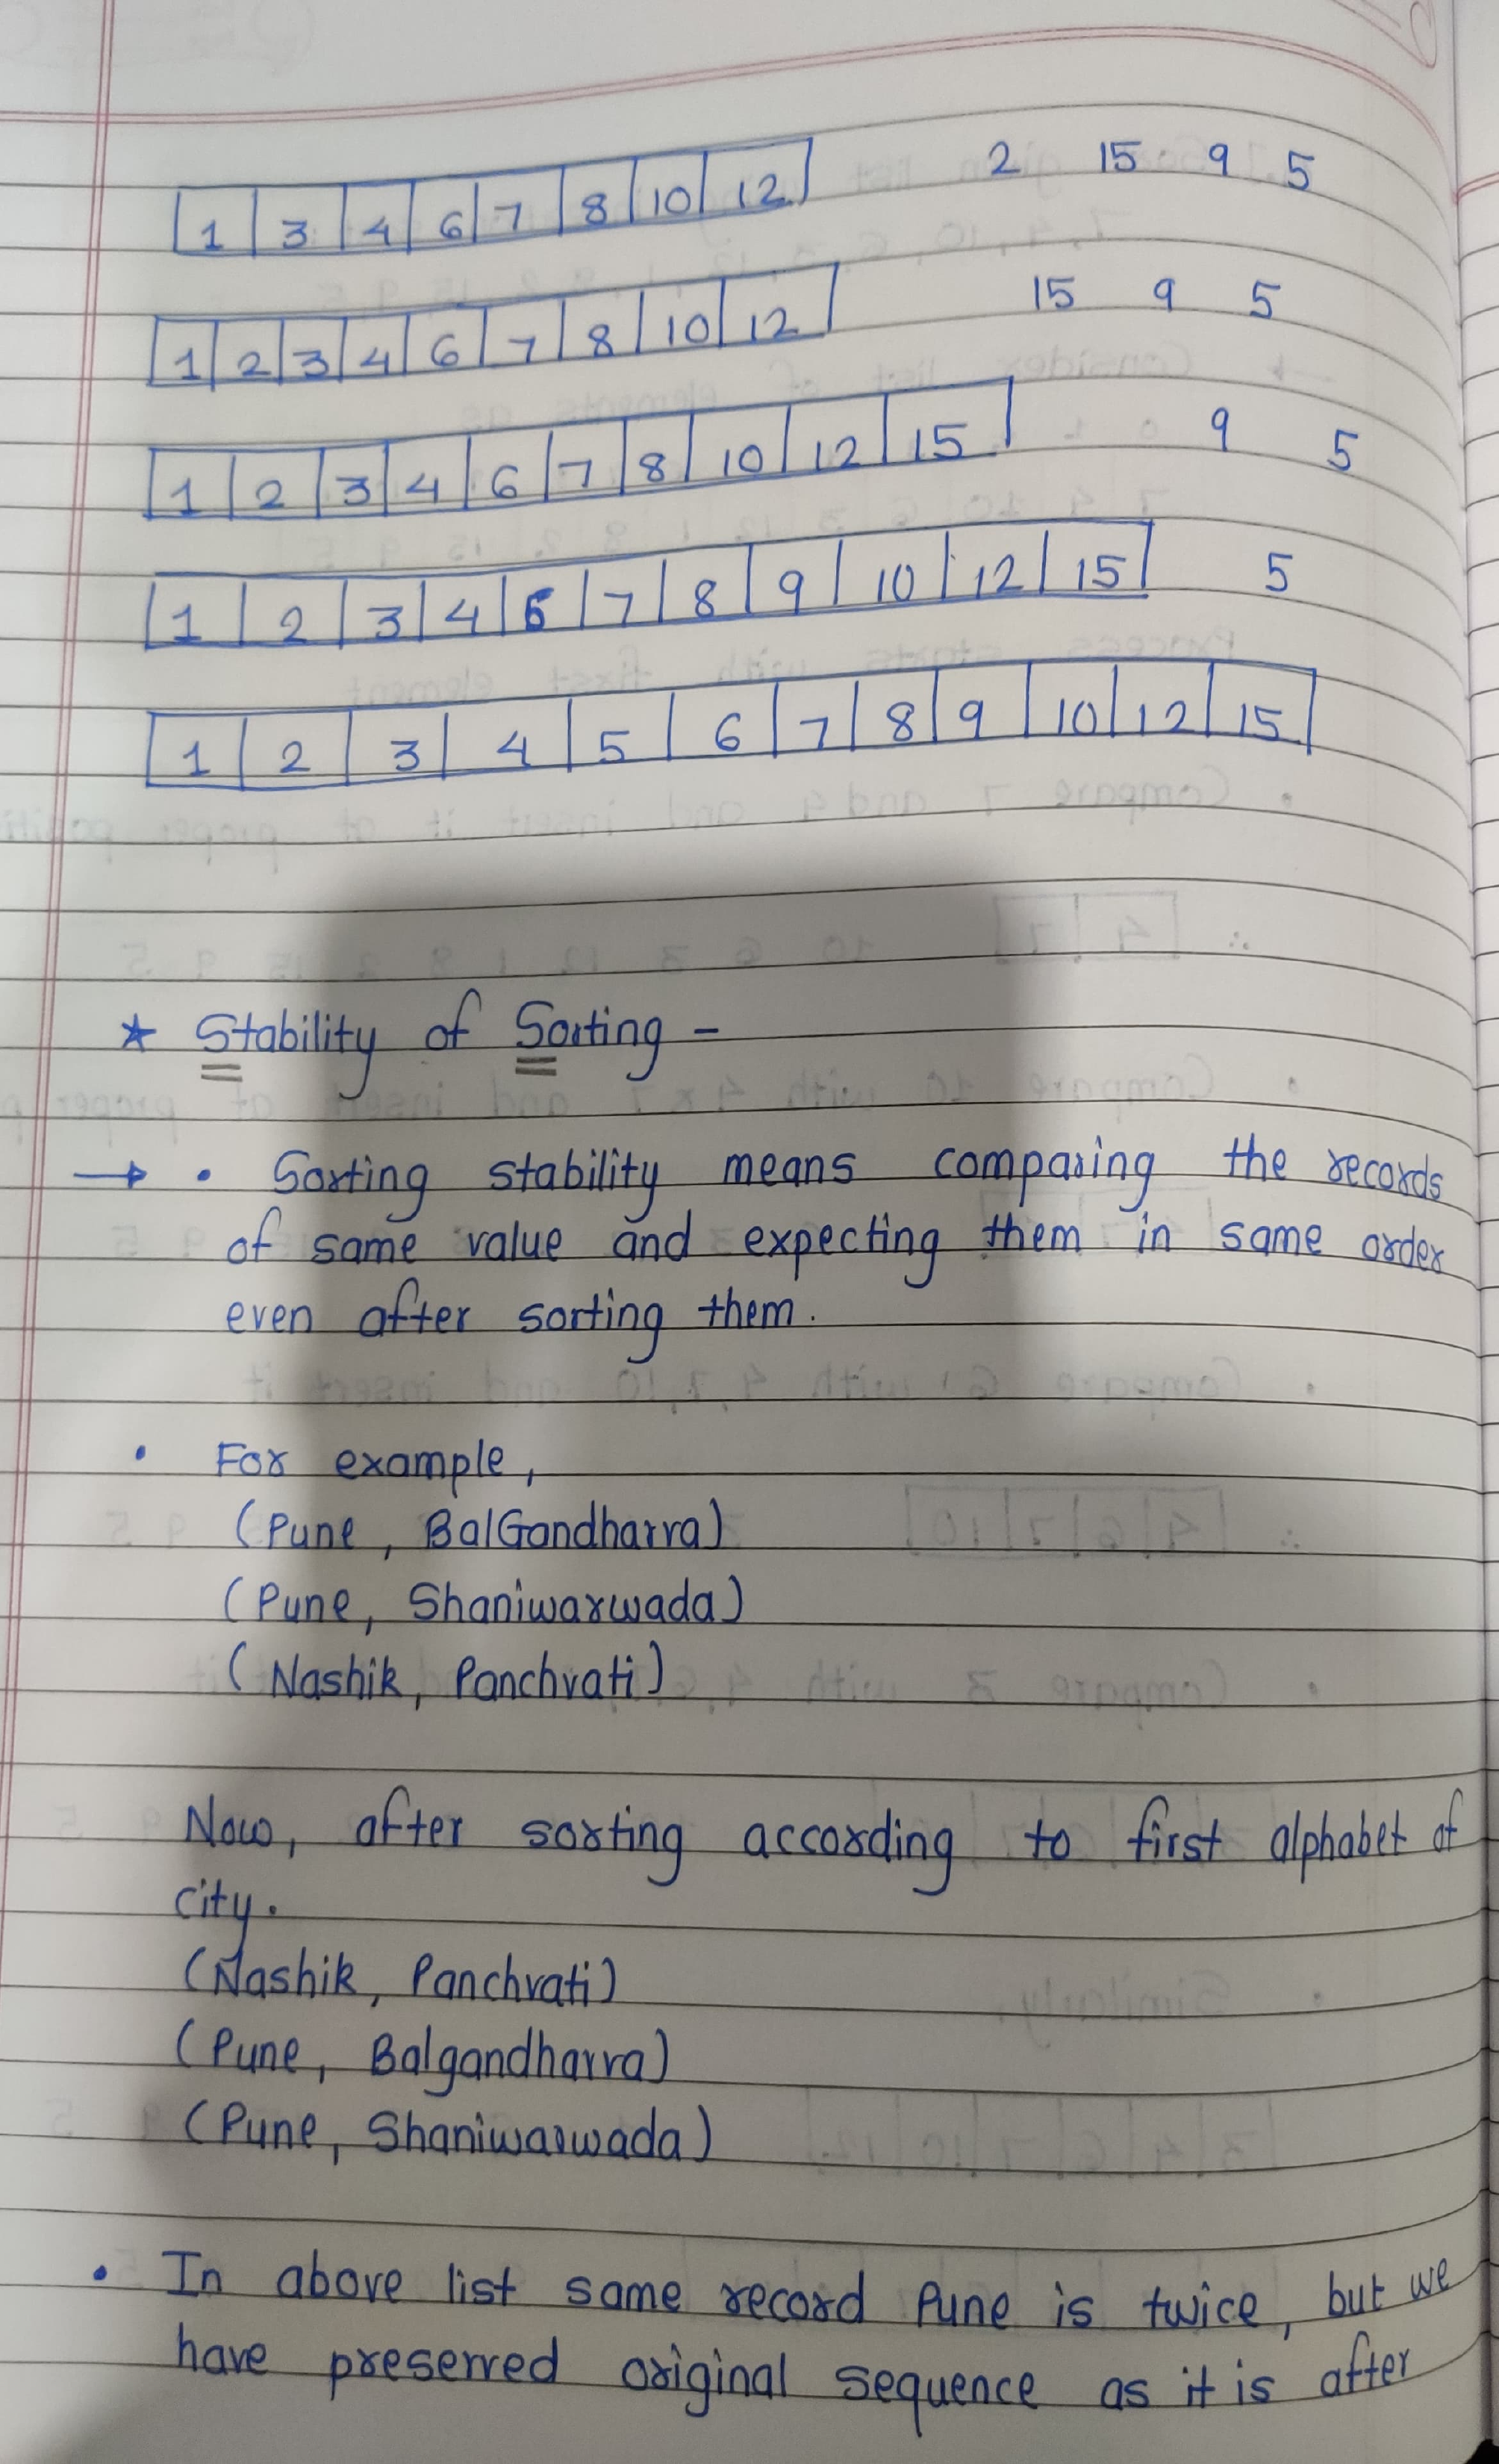 1 3 4 6 7 8 10 12 2 15 9 5
1 2 3 4 6 7 8 10 12 15 9 5
1 2 3 4 6 7 8 10 12 15 9 5
1 2 3 4 6 7 8 9 10 12 15 5
1 2 3 4 5 6 7 8 9 10 12 15
★ Stability of Sorting -
→ • Sorting stability means comparing the records
of same value and expecting them in same order
even after sorting them.
• For example,
(Pune, BalGandharva)
(Pune, Shaniwarwada)
(Nashik, Panchvati)
Now, after sorting according to first alphabet of
city.
(Nashik, Panchvati)
(Pune, Balgandharva)
(Pune, Shaniwarwada)
• In above list same record Pune is twice, but we
have preserved original sequence as it is after